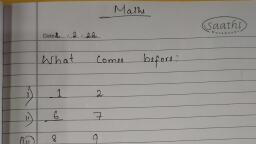 Maths
Saathi
Date 2.2.22
What comes before:
i) 1 2
ii) 6 7
iii) 8 9